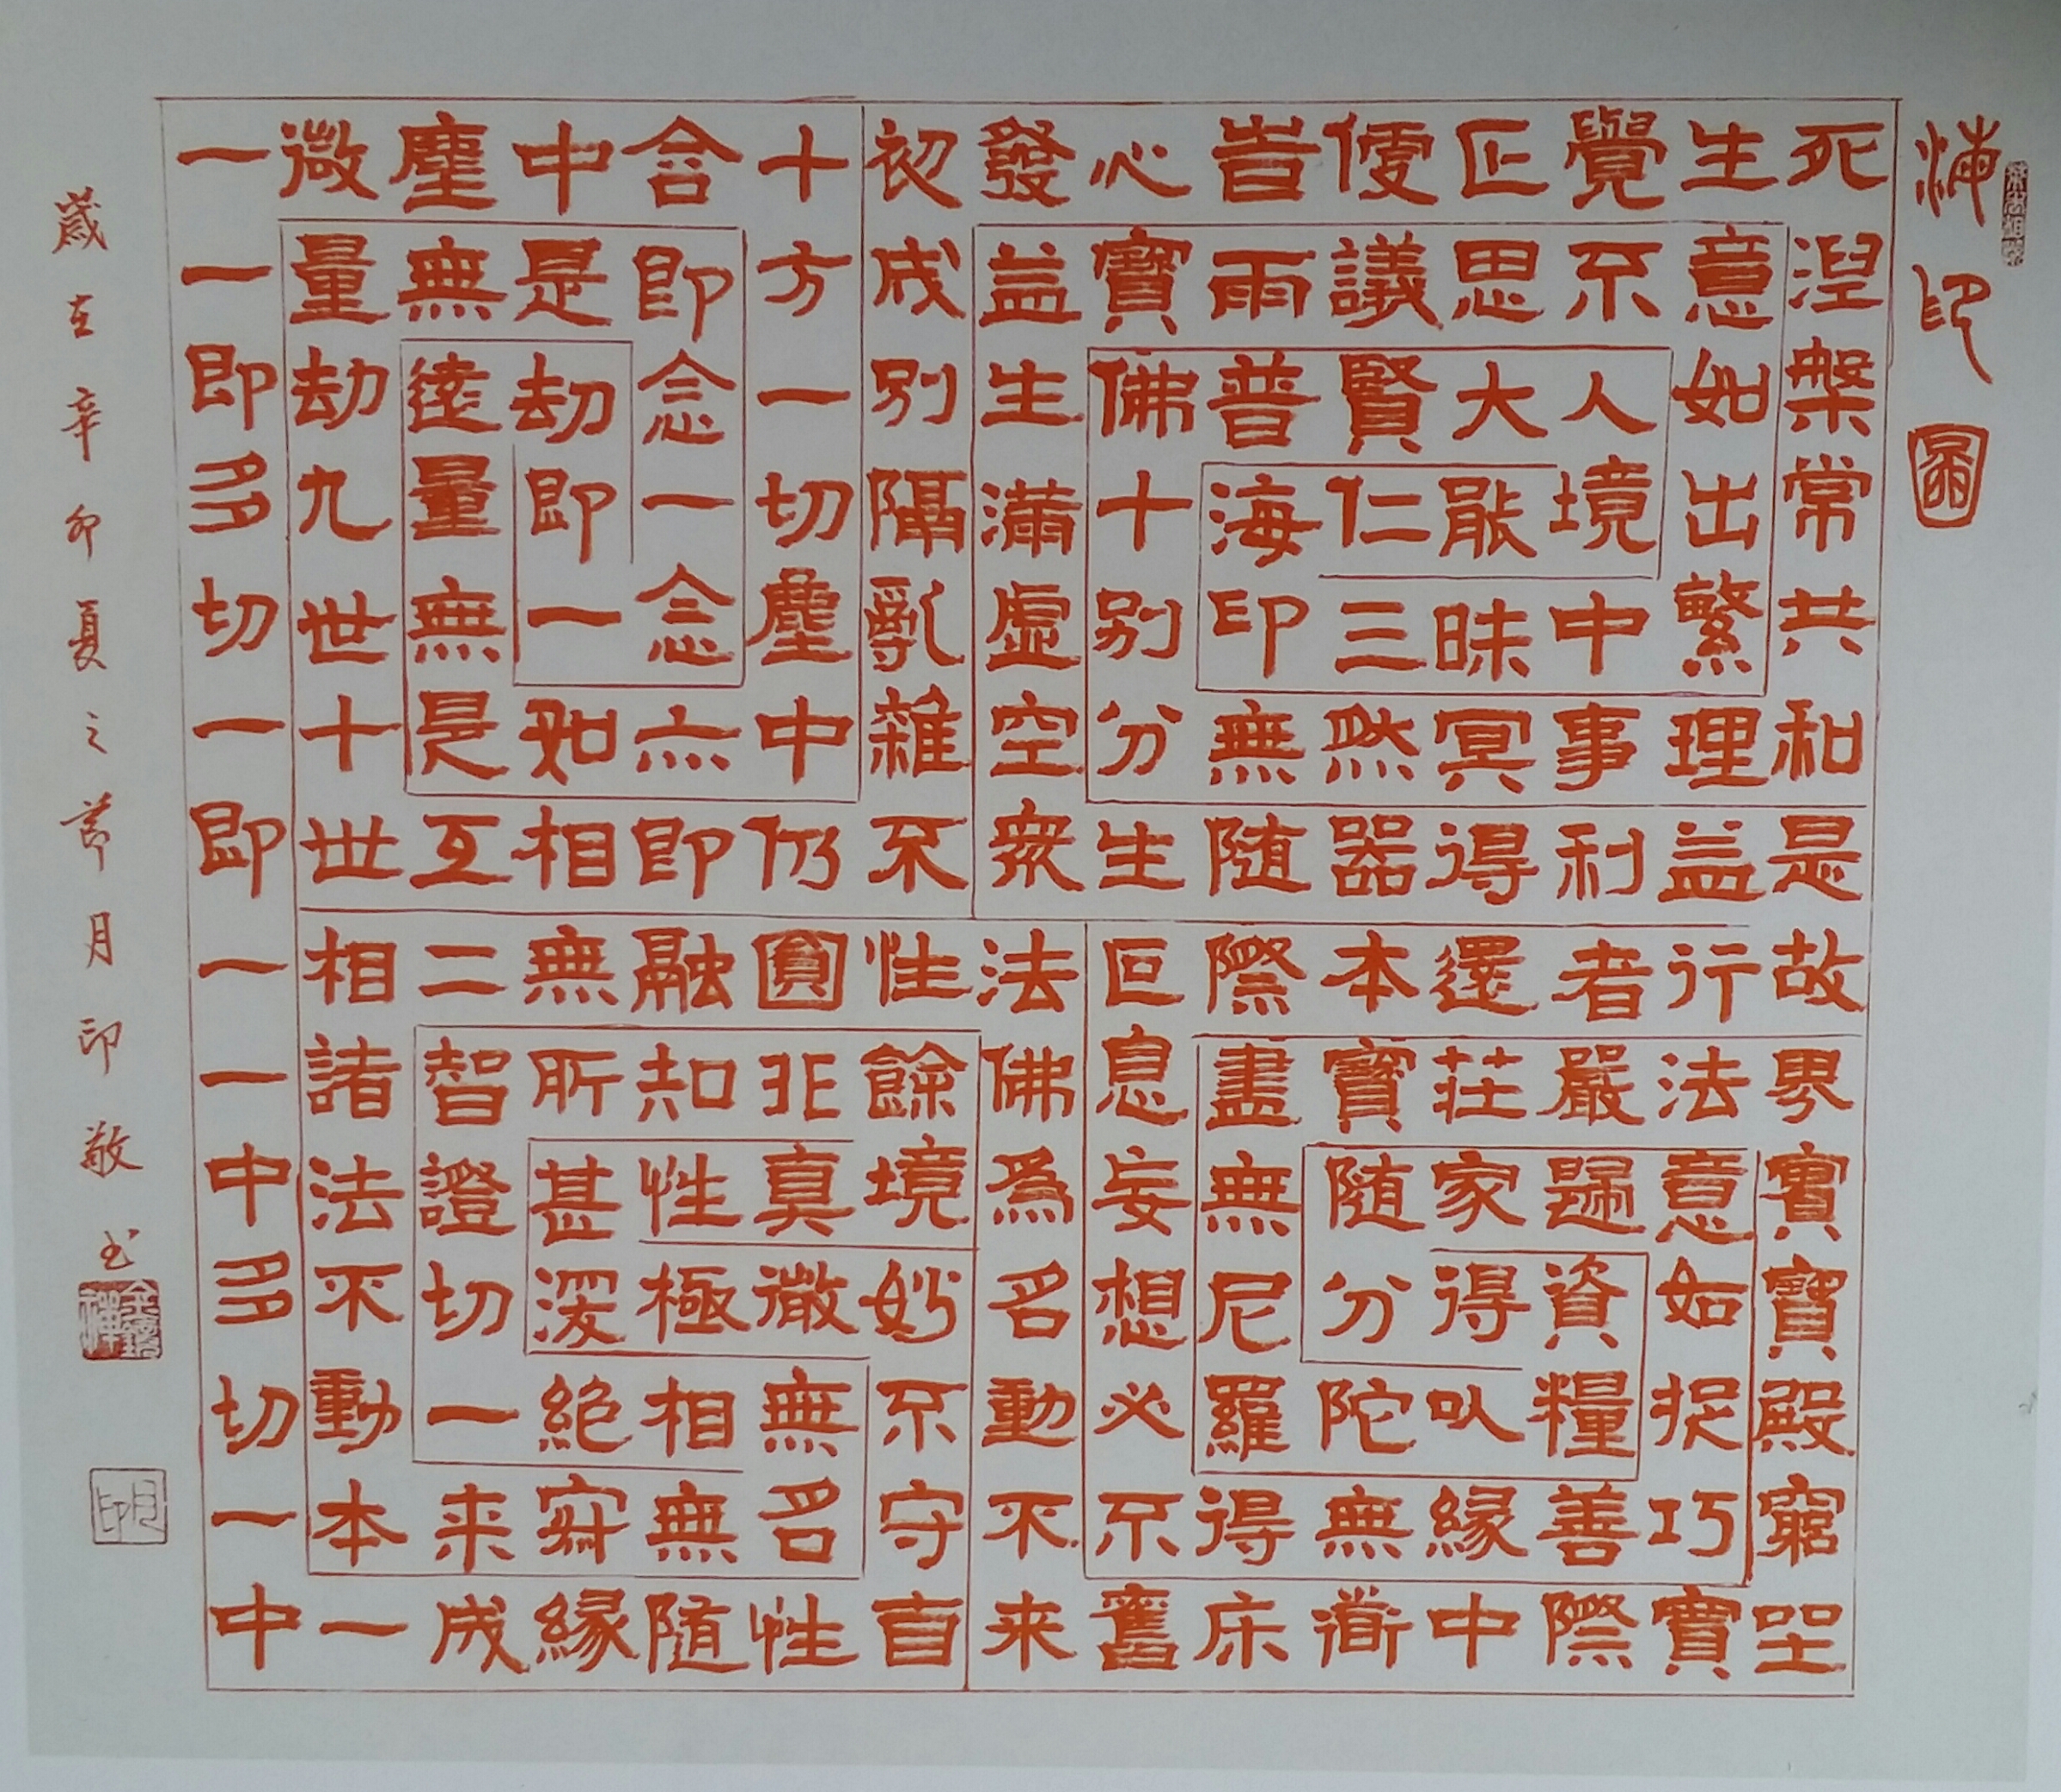 海印圖
死涅槃常共和是故界實寶殿窮坐
生意如出繁理益行法意如捉巧實
覺不人境中事利者嚴歸資糧善際
正思大能昧冥得還莊家得以緣中
便議賢仁三然器本寶隨分陀無道
皆雨普海印無隨際盡無尼羅得床
心寶佛十別分生叵息妄想必不舊
發益生滿虛空眾法佛為名動不来
初成別隔亂雜不性餘境妙不守自
十方一切塵中仍圓非真微無名性
含即念一念亦即融知性極相無隨
中是劫即一如相無所甚深絕寂緣
塵無遠量無是互二智證切一来成
微量劫九世十世相諸法不動本一
一一即多切一即一一中多切一中
歲在辛卯夏之節月印敬书
月印